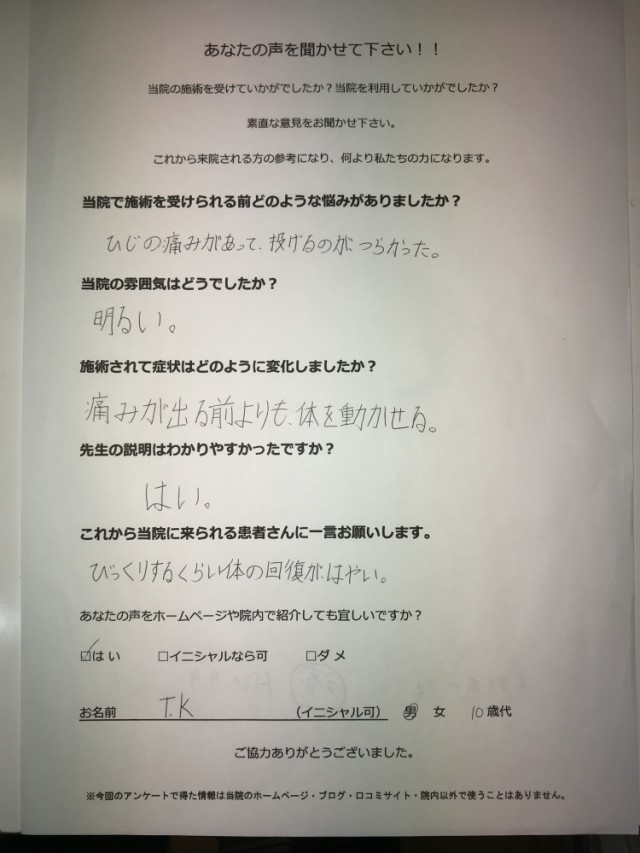 あなたの声を聞かせて下さい！！
当院の施術を受けていかがでしたか？当院を利用していかがでしたか？
素直な意見をお聞かせ下さい。
これから来院される方の参考になり、何より私たちの力になります。
当院で施術を受けられる前どのような悩みがありましたか？
ひじの痛みがあって、投げるのがつらかった。
当院の雰囲気はどうでしたか？
明るい。
施術されて症状はどのように変化しましたか？
痛みが出る前よりも、体を動かせる。
先生の説明はわかりやすかったですか？
はい。
これから当院に来られる患者さんに一言お願いします。
びっくりするくらい体の回復がはやい。
あなたの声をホームページや院内で紹介しても宜しいですか？
☑はい ☐イニシャルなら可 ☐ダメ
お名前 T.K （イニシャル可） 男 女 10歳代
ご協力ありがとうございました。
※今回のアンケートで得た情報は当院のホームページ・ブログ・口コミサイト・院内以外で使うことはありません。